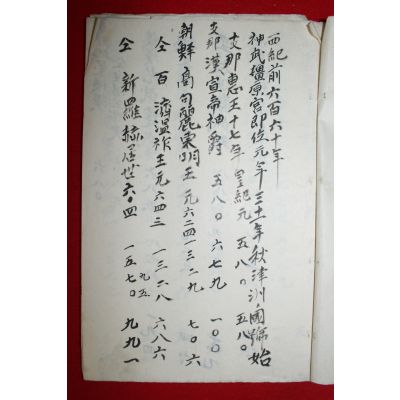 西紀前六百六十年
神武橿原宮即位元年 三十一年秋津洲ノ國號始
支那惠王十七年 皇紀元 五八〇 五八〇
支那漢宣帝神爵 五八〇 六七九 一〇〇
朝鮮高句麗東明王 元六二四 一三二九 七〇六
仝 百濟温祚王元六四三 一三二八 六八六
仝 新羅赫居世六〇四 一五七〇 九五 九九一